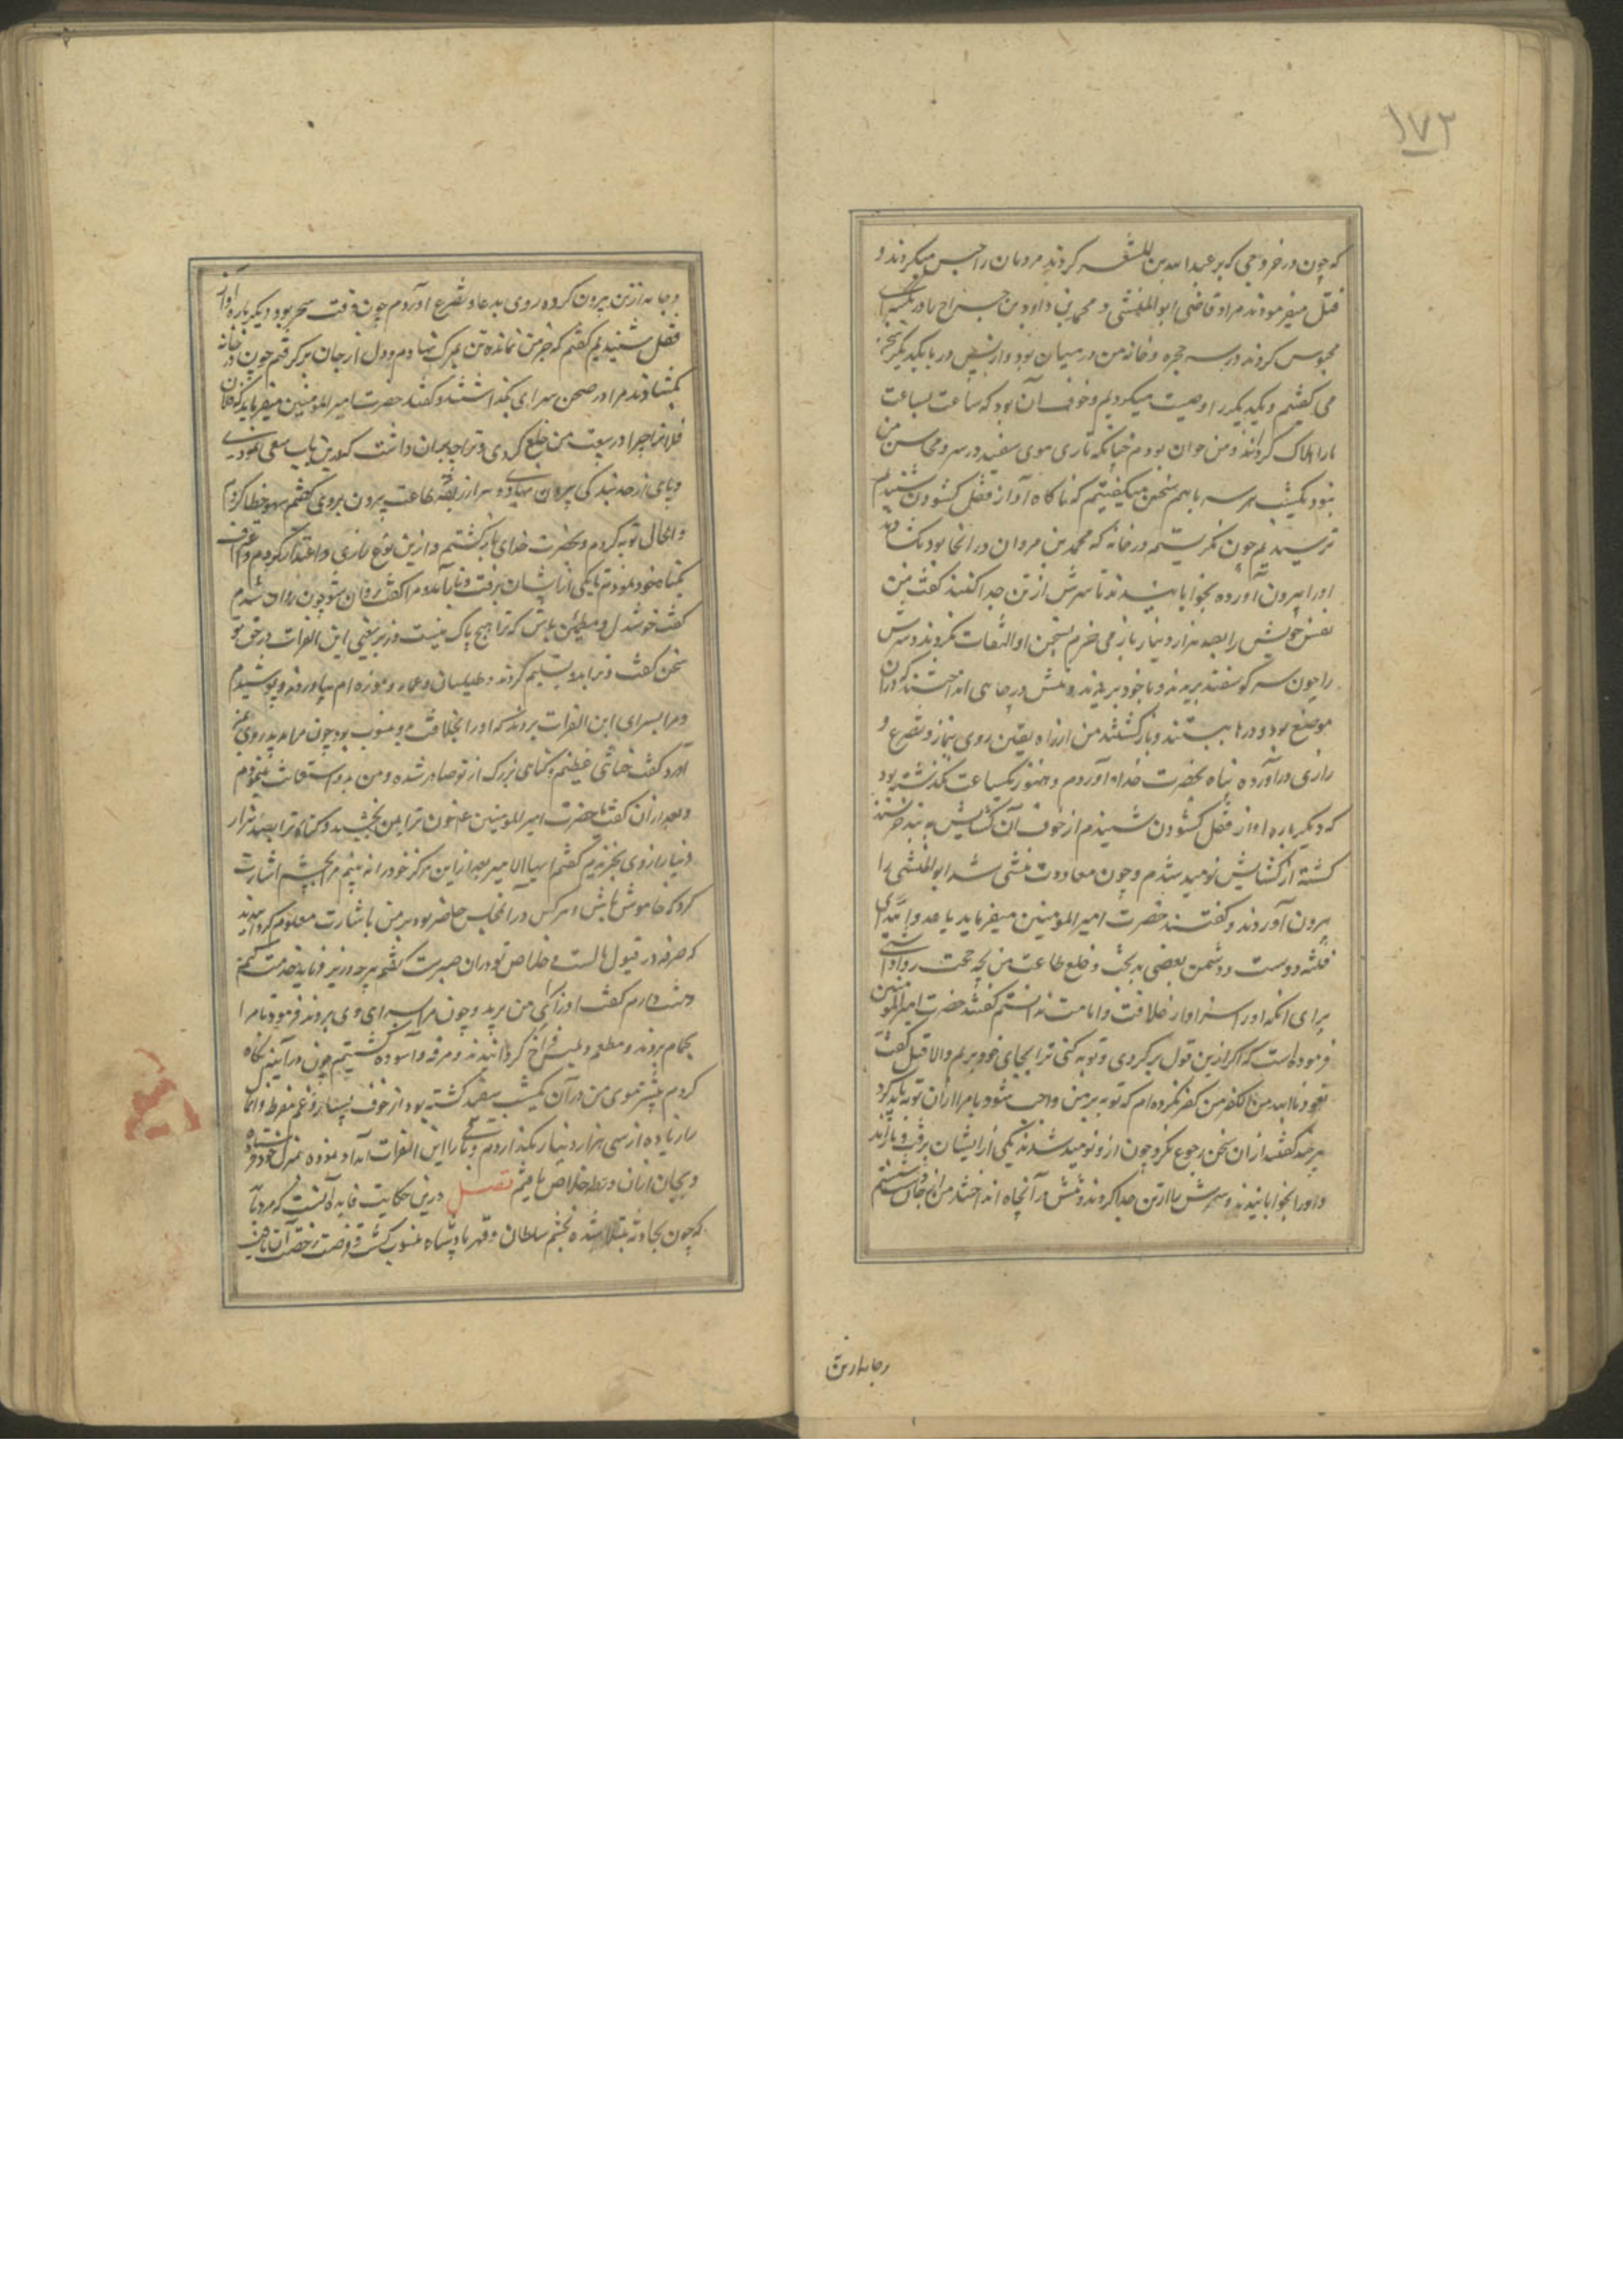 ۱۷۲
که چون در خروجی که بر عبدالله بن المعتز کردند مردمان را حبس میکردند و
قتل میفرمودند مرا و قاضی ابوالمثنی و محمد بن داود بن جراح را در یکسرای
محبوس کردند در سه حجره و خانه من در میان بود و از پس در با یکدیگر سخن
می گفتیم و یکدیگر را وصیت میکردیم و خوف آن بود که ساعت بساعت
ما را هلاک گردانند و من جوان بودم چنانکه تاری موی سفید در سر و محاسن من
نبود یکشب هر سه باهم سخن میگفتیم که ناگاه آواز قفل گشودن شنیدیم
ترسیدیم چون نگریستم در خانه که محمد بن مروان در آنجا بود بگشادند
او را بیرون آورده بخوابانیدند تا سرش از تن جدا کنند گفت من
نفس خویش را بصد هزار دینار باز می خرم بسخن او التفات نکردند و سرش
را چون سر گوسفند بریدند و با خود بردند و تنش در چاهی انداختند که در آن
موضع بود و درها ببستند و بازگشتند من از راه یقین روی بنماز و تضرع و
زاری در آورده پناه بحضرت خداه آوردم و هنوز یکساعت نگذشته بود
که دیگر باره آواز قفل گشودن شنیدم از خوف آن گشایش به بند
گشته از گشایش نومید شدم و چون معاودت مثنی شد ابوالمثنی را
بیرون آوردند و گفتند حضرت امیرالمومنین میفرماید یا عدو الله ای
فتنه دوست و دشمن بعضی بدبخت و خلع طاعت من بچه حجت روا داشتی
برای آنکه او را سزاوار خلافت و امامت ندانستم گفتند حضرت امیرالمومنین
فرموده است که اگر ازین قول برگردی و توبه کنی ترا بجای خود بریم والا قتل گفت
نعوذ بالله من الکفر من کفر نکرده ام که توبه بر من واجب شود یا مرا از آن توبه باید کرد
هر چند گفتند از آن سخن رجوع نکرد چون ازو نومید شدند یکی از ایشان برفت و باز آمد
و او را بخوابانیدند و سرش را از تن جدا کردند و تنش در آنچاه انداختند من از جان دست شستم
و جامه از تن
و جامه از تن بیرون کرده روی بدعا و تضرع آوردم چون وقت سحر بود دیگر باره آواز
قفل شنیدیم گفتم که جز من نمانده تن بمرگ نهادم و دل از جان برگرفتم چون در خانه
بگشادند مرا در صحن سرای بگذاشتند و گفتند حضرت امیرالمومنین میفرماید که فلان
فلان چرا در بیعت من خلع کردی و ترا چه بران داشت که درین باب سعی نمودی
و پای از حد بندگی بیرون نهادی و سر از ربقه طاعت بیرون بردی گفتم سهو خطا کردم
و الحال توبه کردم و بحضرت خدای بازگشتم و ازین نوع زاری و اعتذار کردم و اعتراف
بگناه خود نمودم تا یکی از ایشان برفت و باز آمد و مرا گفت روان شو چون روان شدم
گفت خوشدل و مطمئن باش که ترا هیچ باک نیست وزیر یعنی ابن الفرات در حق تو
سخن گفت و ترا بدو تسلیم کردند و طیلسان و عمامه و موزه ام بیاوردند و پوشیدم
و مرا بسرای ابن الفرات بردند که او را بخلافت منسوب بود چون مرا بدید روی بمن
آورد گفت خیانتی عظیم و گناهی بزرگ از تو صادر شده و من بدو استغاثت مینمودم
و بعد از آن گفت حضرت امیرالمومنین خون ترا بمن بخشید و گناه ترا بصد هزار
دینار از وی بخریدم گفتم ایها الامیر بعد از این هرگز خود را نه بینم مرا بچشم اشارت
کرد که خاموش باش و هر کس در آن مجلس حاضر بود بر من باشارت معلوم گردانید
که صرفه در قبول مالست و خلاص تو دران صبر است گفتم هر چه وزیر فرماید خدمت کنم
منت دارم گفت او را بسرای من برید و چون مرا بسرای وی بردند فرمود تا مرا
بحمام بردند و مطعم و ملبس فراخ گردانیدند و مرفه و آسوده گشتم چون در آینه نگاه
کردم بیشتر موی من در آن یکشب سفید گشته بود از خوف بسیار و غم مفرط
را زیاده از سی هزار دینار بگذاردم و باقی را ابن الفرات امداد نموده بمنزل خود فرستاد
و بجان از آن ورطه خلاص یافتم فصل درین حکایت فایده آنست که مرد باید
که چون بحادثه مبتلا شده بخشم سلطان و قهر پادشاه منسوب گشت و فرصت رخصت آن یافت